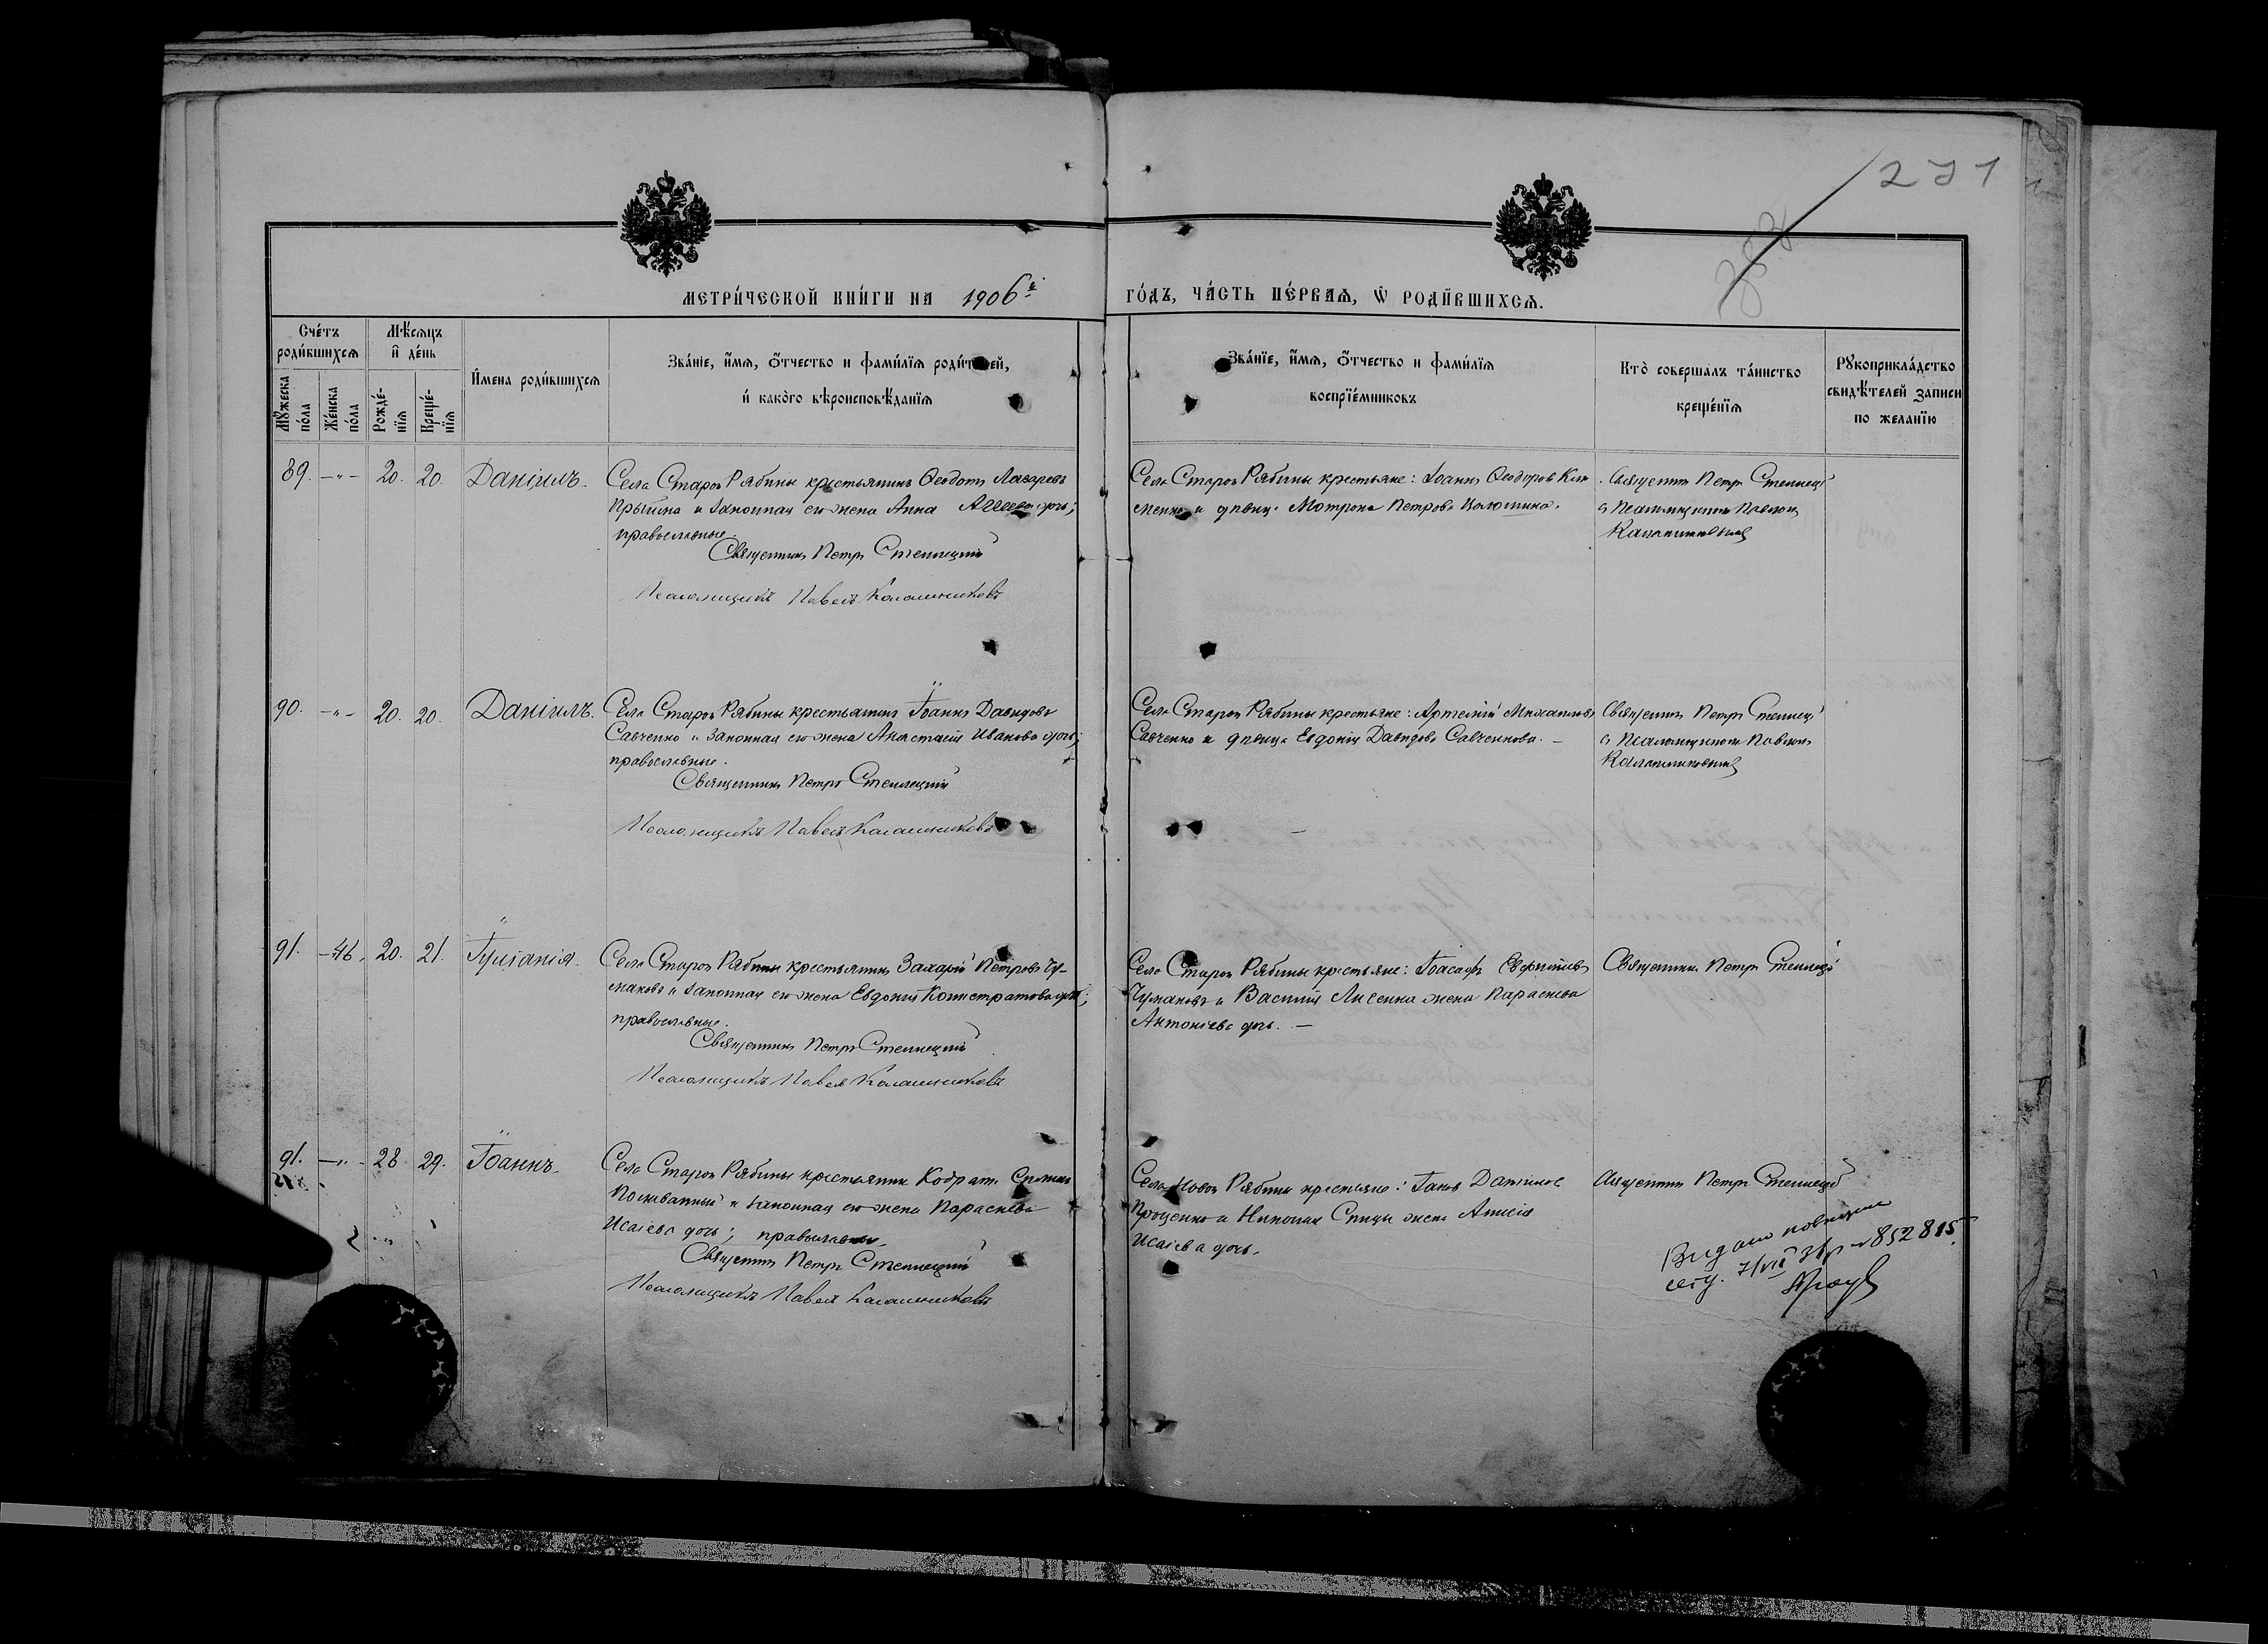 271
МЕТРИ́ЧЕСКОЙ КНИ́ГИ НА 1906й ГО́ДЪ, ЧА́СТЬ ПЕ́РВАѦ, Ѡ҆ РОДИ́ВШИХСѦ.
Сче́тъ роди́вшихсѧ
Мѣ́сѧцъ и҆ де́нь
Мꙋ́жеска по́ла
Же́нска по́ла
Рожде́-нїѧ
Креще́-нїѧ
И҆мена роди́вшихсѧ
Зва́нїе, и҆́мѧ, ѻ҆́тчество и фами́лїѧ роди́телей,
и҆ како́гѡ вѣроисповѣ́данїѧ
Зва́нїе, и҆́мѧ, ѻ҆́тчество и фами́лїѧ
воспрїе́мниковъ
Кто̀ соверша́лъ та́инство
креще́нїѧ
Рꙋкоприкла́дство
свидѣ́телей записи
по желанїю
89. -"- 20. 20. Даніилъ.
Села Старой Рябины крестьянинъ Ѳеодотъ Лазаревъ
и законная его жена Анна
православные.
Священникъ Петръ Стеллецкій
Псаломщикъ Павелъ Калашниковъ
Села Старой Рябины крестьяне: Іоаннъ Ѳеодоровъ Кли-
менко и дѣвица Мотрона Петрова
Священникъ Петръ Стеллецкій
съ псаломщикомъ Павломъ
Калашниковымъ
90. -"- 20. 20. Даніилъ.
Села Старой Рябины крестьянинъ Іоаннъ Давидовъ
Савченко и законная его жена Анастасія Иванова дочь;
православные.
Священникъ Петръ Стеллецкій
Псаломщикъ Павелъ Калашниковъ
Села Старой Рябины крестьяне: Артемій Михаиловъ
Савченко и дѣвица Евдокія Давидова Савченкова. –
Священникъ Петръ Стеллецкій
съ псаломщикомъ Павломъ
Калашниковымъ
91. -46. 20. 21. Іуліанія.
Села Старой Рябины крестьянинъ Захарій Петровъ Чу-
маковъ и законная его жена Евдокія Калистратова дочь;
православные.
Священникъ Петръ Стеллецкій
Псаломщикъ Павелъ Калашниковъ
Села Старой Рябины крестьяне: Іоасафъ
Чумаковъ и Василія Лисенка жена Параскева
Антоніева дочь. –
Священникъ Петръ Стеллецкій
91. -"- 28. 29. Іоаннъ.
Села Старой Рябины крестьянинъ Кодратъ
и законная его жена Параскева
Исаіева дочь; православные.
Священникъ Петръ Стеллецкій
Псаломщикъ Павелъ Калашниковъ
Села Новой Рябины крестьяне: Іаковъ Даніиловъ
Проценко и Николая Спицы жена
Исаіева дочь.
Священникъ Петръ Стеллецкій
Видано
7/VII 852815